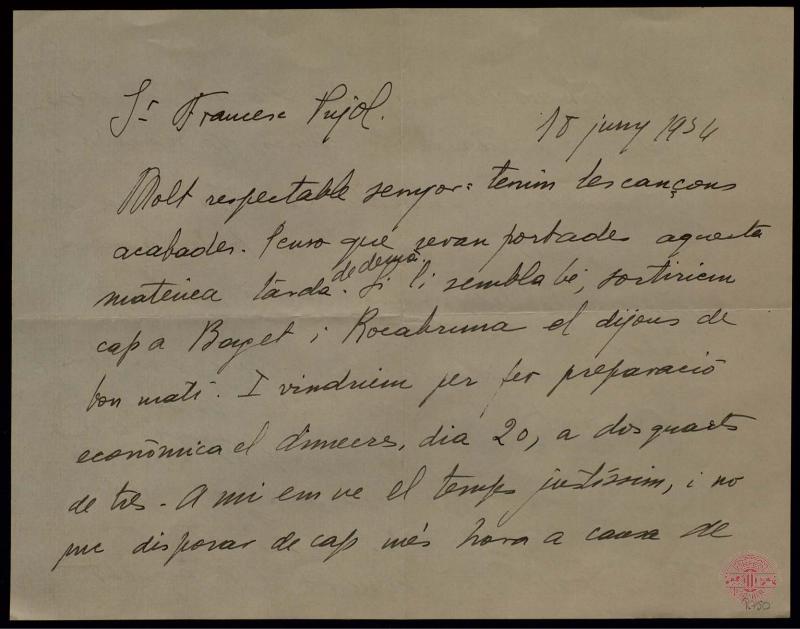 Sr Francesc Pujol.
18 juny 1934
Molt respectable senyor: tenim les cançons
acabades. Penso que seran portades aquesta
mateixa tarda de demà. Si li sembla bé, sortiriem
cap a Baget i Rocabruna el dijous de
bon matí. I vindriem per fer preparació
econòmica el dimecres, dia 20, a dos quarts
de tres. A mi em ve el temps justíssim, i no
puc disposar de cap més hora a causa de